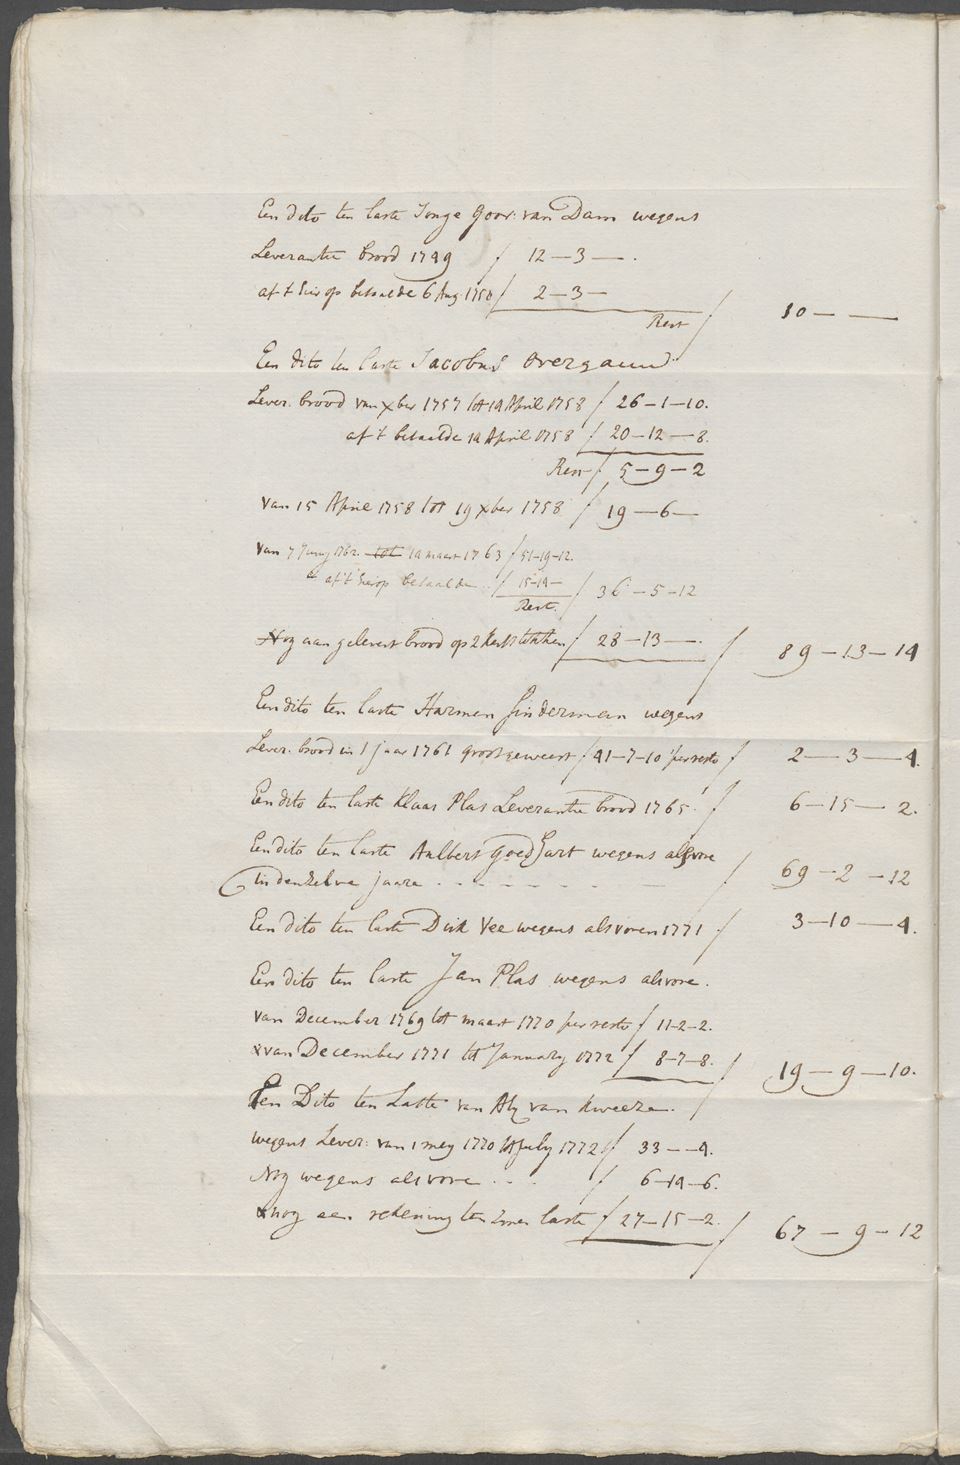 Een dito ten laste Jonge Goov: van Dam wegens
Leverantie brood 1749 f 12 — 3 — .
af 't hier op betaalde 6 Aug: 1750 f 2 — 3 —
Rest f 10 — —
Een dito ten laste Jacobus Overgaauw
Lever. brood van xber 1757 tot 14 April 1758 f 26 - 1 - 10.
af 't betaalde 14 April 1758 f 20 - 12 - 8.
Rest f 5 - 9 - 2
van 15 April 1758 tot 19 xber 1758 f 19 — 6 —
van 7 Juny 1762. tot 14 maart 1763 f 51-19-12.
af 't hierop betaalde .. f 15-14 — f 36 - 5 - 12
Rest.
Nog aan gelevert brood op 2 kerfstokken f 28 - 13 — . f 89 - 13 - 14
Een dito ten laste Harmen Sinderman wegens
Lever. brood in 1 jaar 1761 groot geweest f 41-7-10 per resto f 2 — 3 — 4.
Een dito ten laste Klaas Plas Leverantie brood 1765. f 6 - 15 — 2.
Een dito ten laste Aalbers Goedhart wegens alsvore
in denzelve jaare - - - - - - f 69 - 2 - 12
Een dito ten laste Dirk Vee wegens alsvoren 1771 f 3 - 10 — 4.
Een dito ten laste Jan Plas wegens alsvore.
van December 1769 tot maart 1770 per resto f 11-2-2.
& van December 1771 tot January 1772 f 8-7-8. f 19 — 9 — 10.
Een Dito ten Laste van Aly van Kweeze.
wegens Lever: van 1 mey 1770 tot July 1772 f 33 - - 4.
Nog wegens alsvore . . . f 6-14-6.
& nog een rekening ten zynen laste f 27-15-2. f 67 — 9 - 12